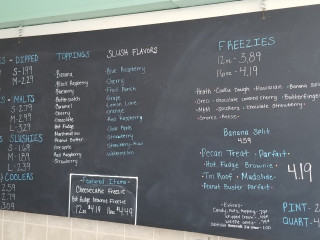 S - DIPPED
S-1.99
M-2.29
S - MALTS
S-2.79
M-2.99
L-3.29
SLUSHIES
S-1.69
M-1.89
L-2.39
COOLERS
2.59
2.79
3.09
TOPPINGS
Banana
Black Raspberry
Blueberry
Butterscotch
Caramel
Cherry
Chocolate
Hot Fudge
Marshmallow
Peanut Butter
Pineapple
Red Raspberry
Strawberry
SLUSH FLAVORS
Blue Raspberry
Cherry
Fruit Punch
Grape
Lemon Lime
Orange
Red Raspberry
Sour Apple
Strawberry
Watermelon
Featured Items:
Cheesecake Freezie
Hot Fudge Brownie Freezie
12oz 4.19 16oz 4.49
FREEZIES
12oz - 3.89
16oz - 4.19
Heath - Cookie Dough - Hawaiian - Banana
Oreo - Chocolate Covered Cherry - Butterfinger
M&M - Snickers - Chocolate Strawberry
Smores - Reese
Banana Split
4.59
Pecan Treat - Parfait
Hot Fudge Brownie
Tin Roof - Mudslide
Peanut Buster Parfait
4.19
Extras:
PINT-2
QUART-4